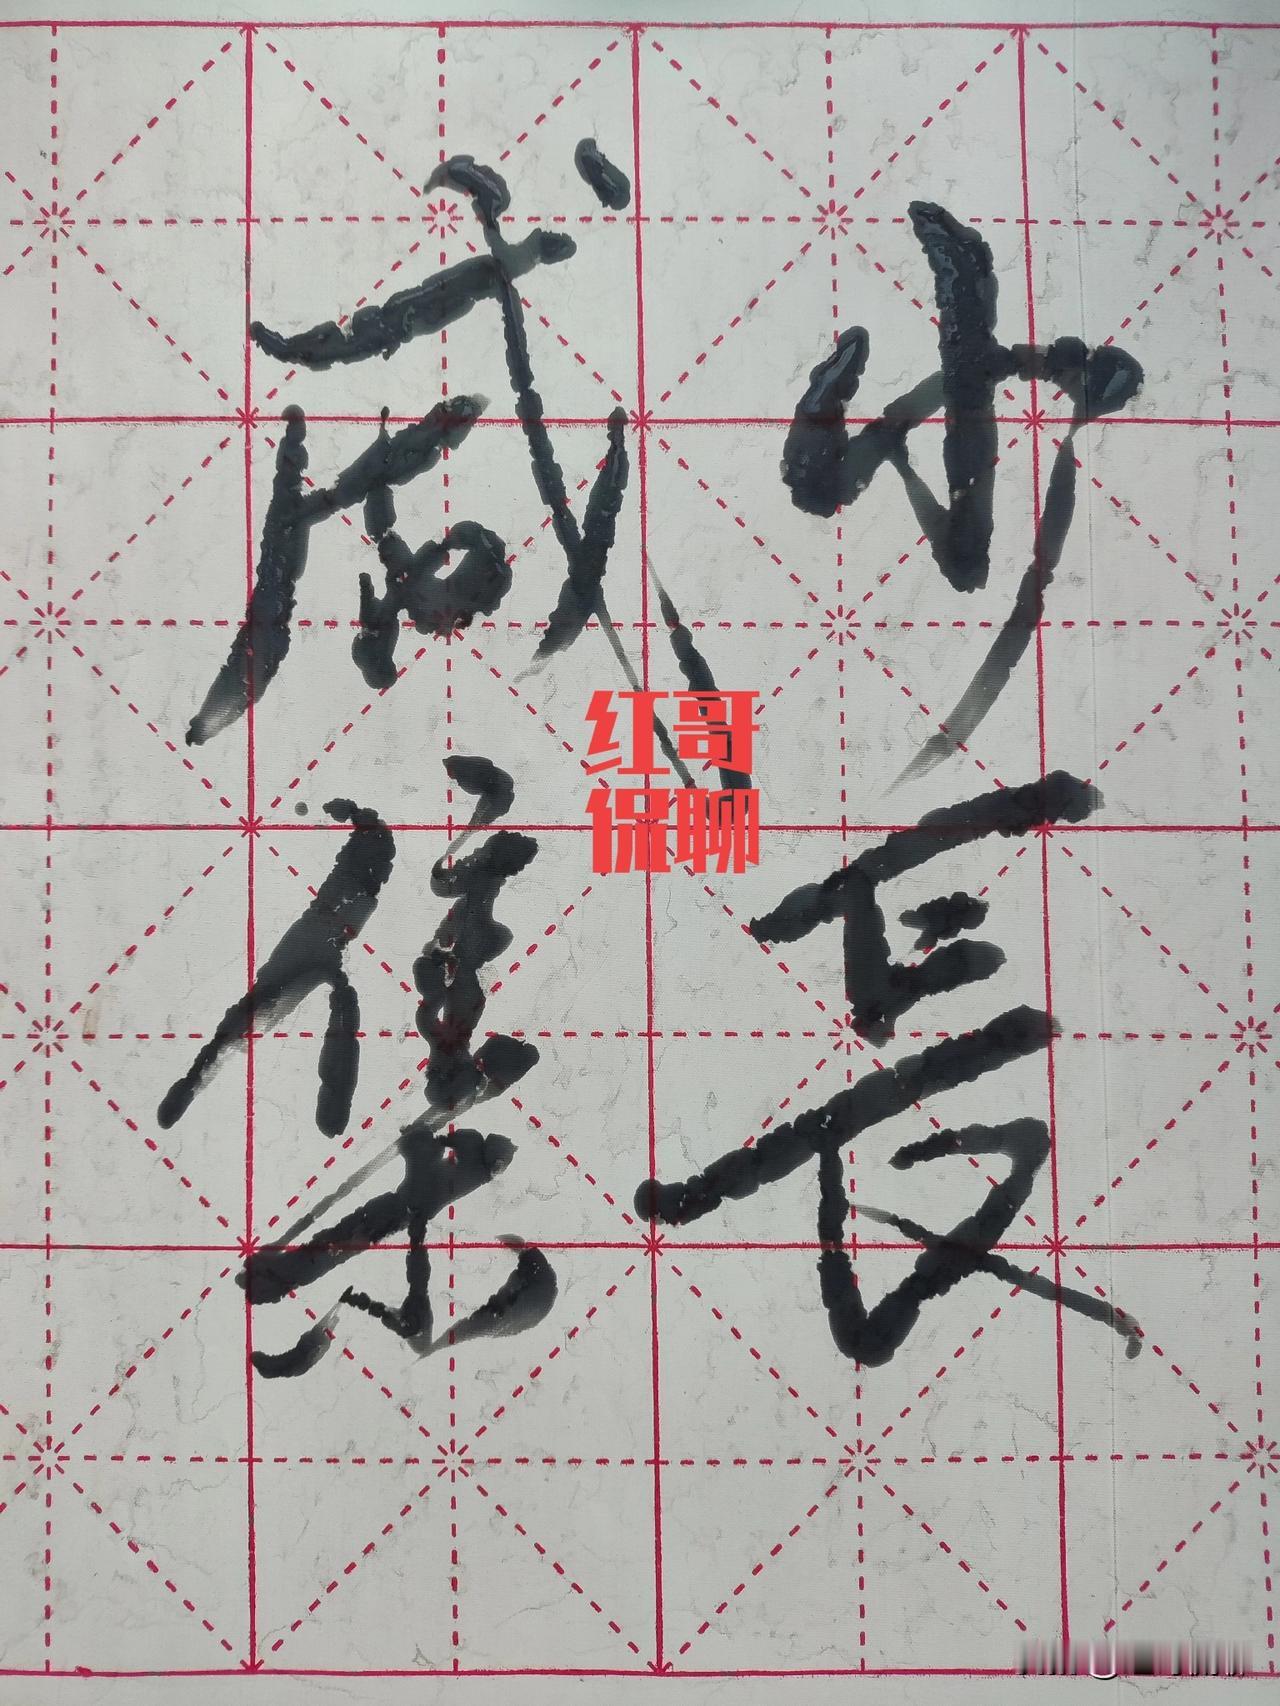 少長
咸集
红哥
侃聊